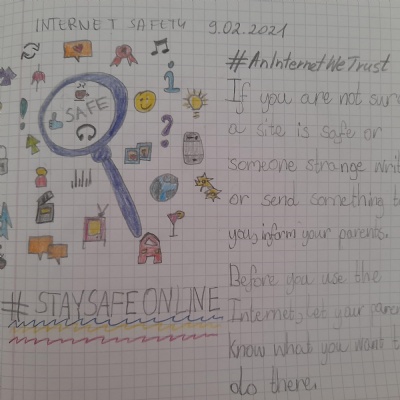 INTERNET SAFETY 9.02.2021
SAFE
#STAYSAFEONLINE
#AnInternetWeTrust
If you are not sure
a site is safe or
someone strange
or send something to
you, inform your parents.
Before you use the
Internet, let your
know what you want to
do there.